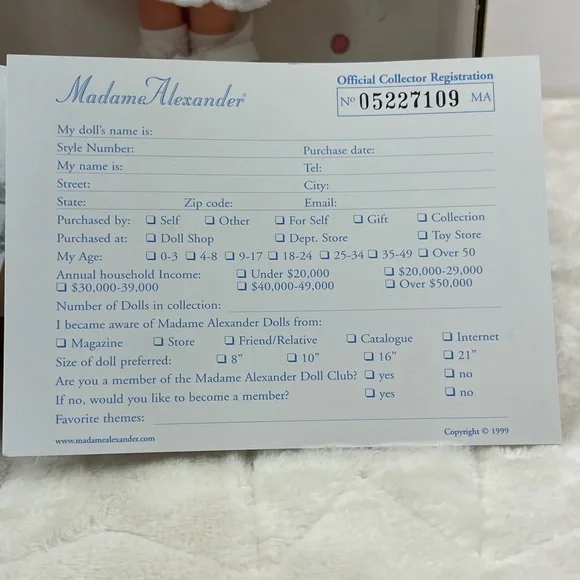 Madame Alexander®
Official Collector Registration
Nº 05227109 MA
My doll's name is:
Style Number: Purchase date:
My name is: Tel:
Street: City:
State: Zip code: Email:
Purchased by: ❏ Self ❏ Other ❏ For Self ❏ Gift ❏ Collection
Purchased at: ❏ Doll Shop ❏ Dept. Store ❏ Toy Store
My Age: ❏ 0-3 ❏ 4-8 ❏ 9-17 ❏ 18-24 ❏ 25-34 ❏ 35-49 ❏ Over 50
Annual household Income: ❏ Under $20,000 ❏ $20,000-29,000
❏ $30,000-39,000 ❏ $40,000-49,000 ❏ Over $50,000
Number of Dolls in collection:
I became aware of Madame Alexander Dolls from:
❏ Magazine ❏ Store ❏ Friend/Relative ❏ Catalogue ❏ Internet
Size of doll preferred: ❏ 8" ❏ 10" ❏ 16" ❏ 21"
Are you a member of the Madame Alexander Doll Club? ❏ yes ❏ no
If no, would you like to become a member? ❏ yes ❏ no
Favorite themes:
www.madamealexander.com Copyright © 1999